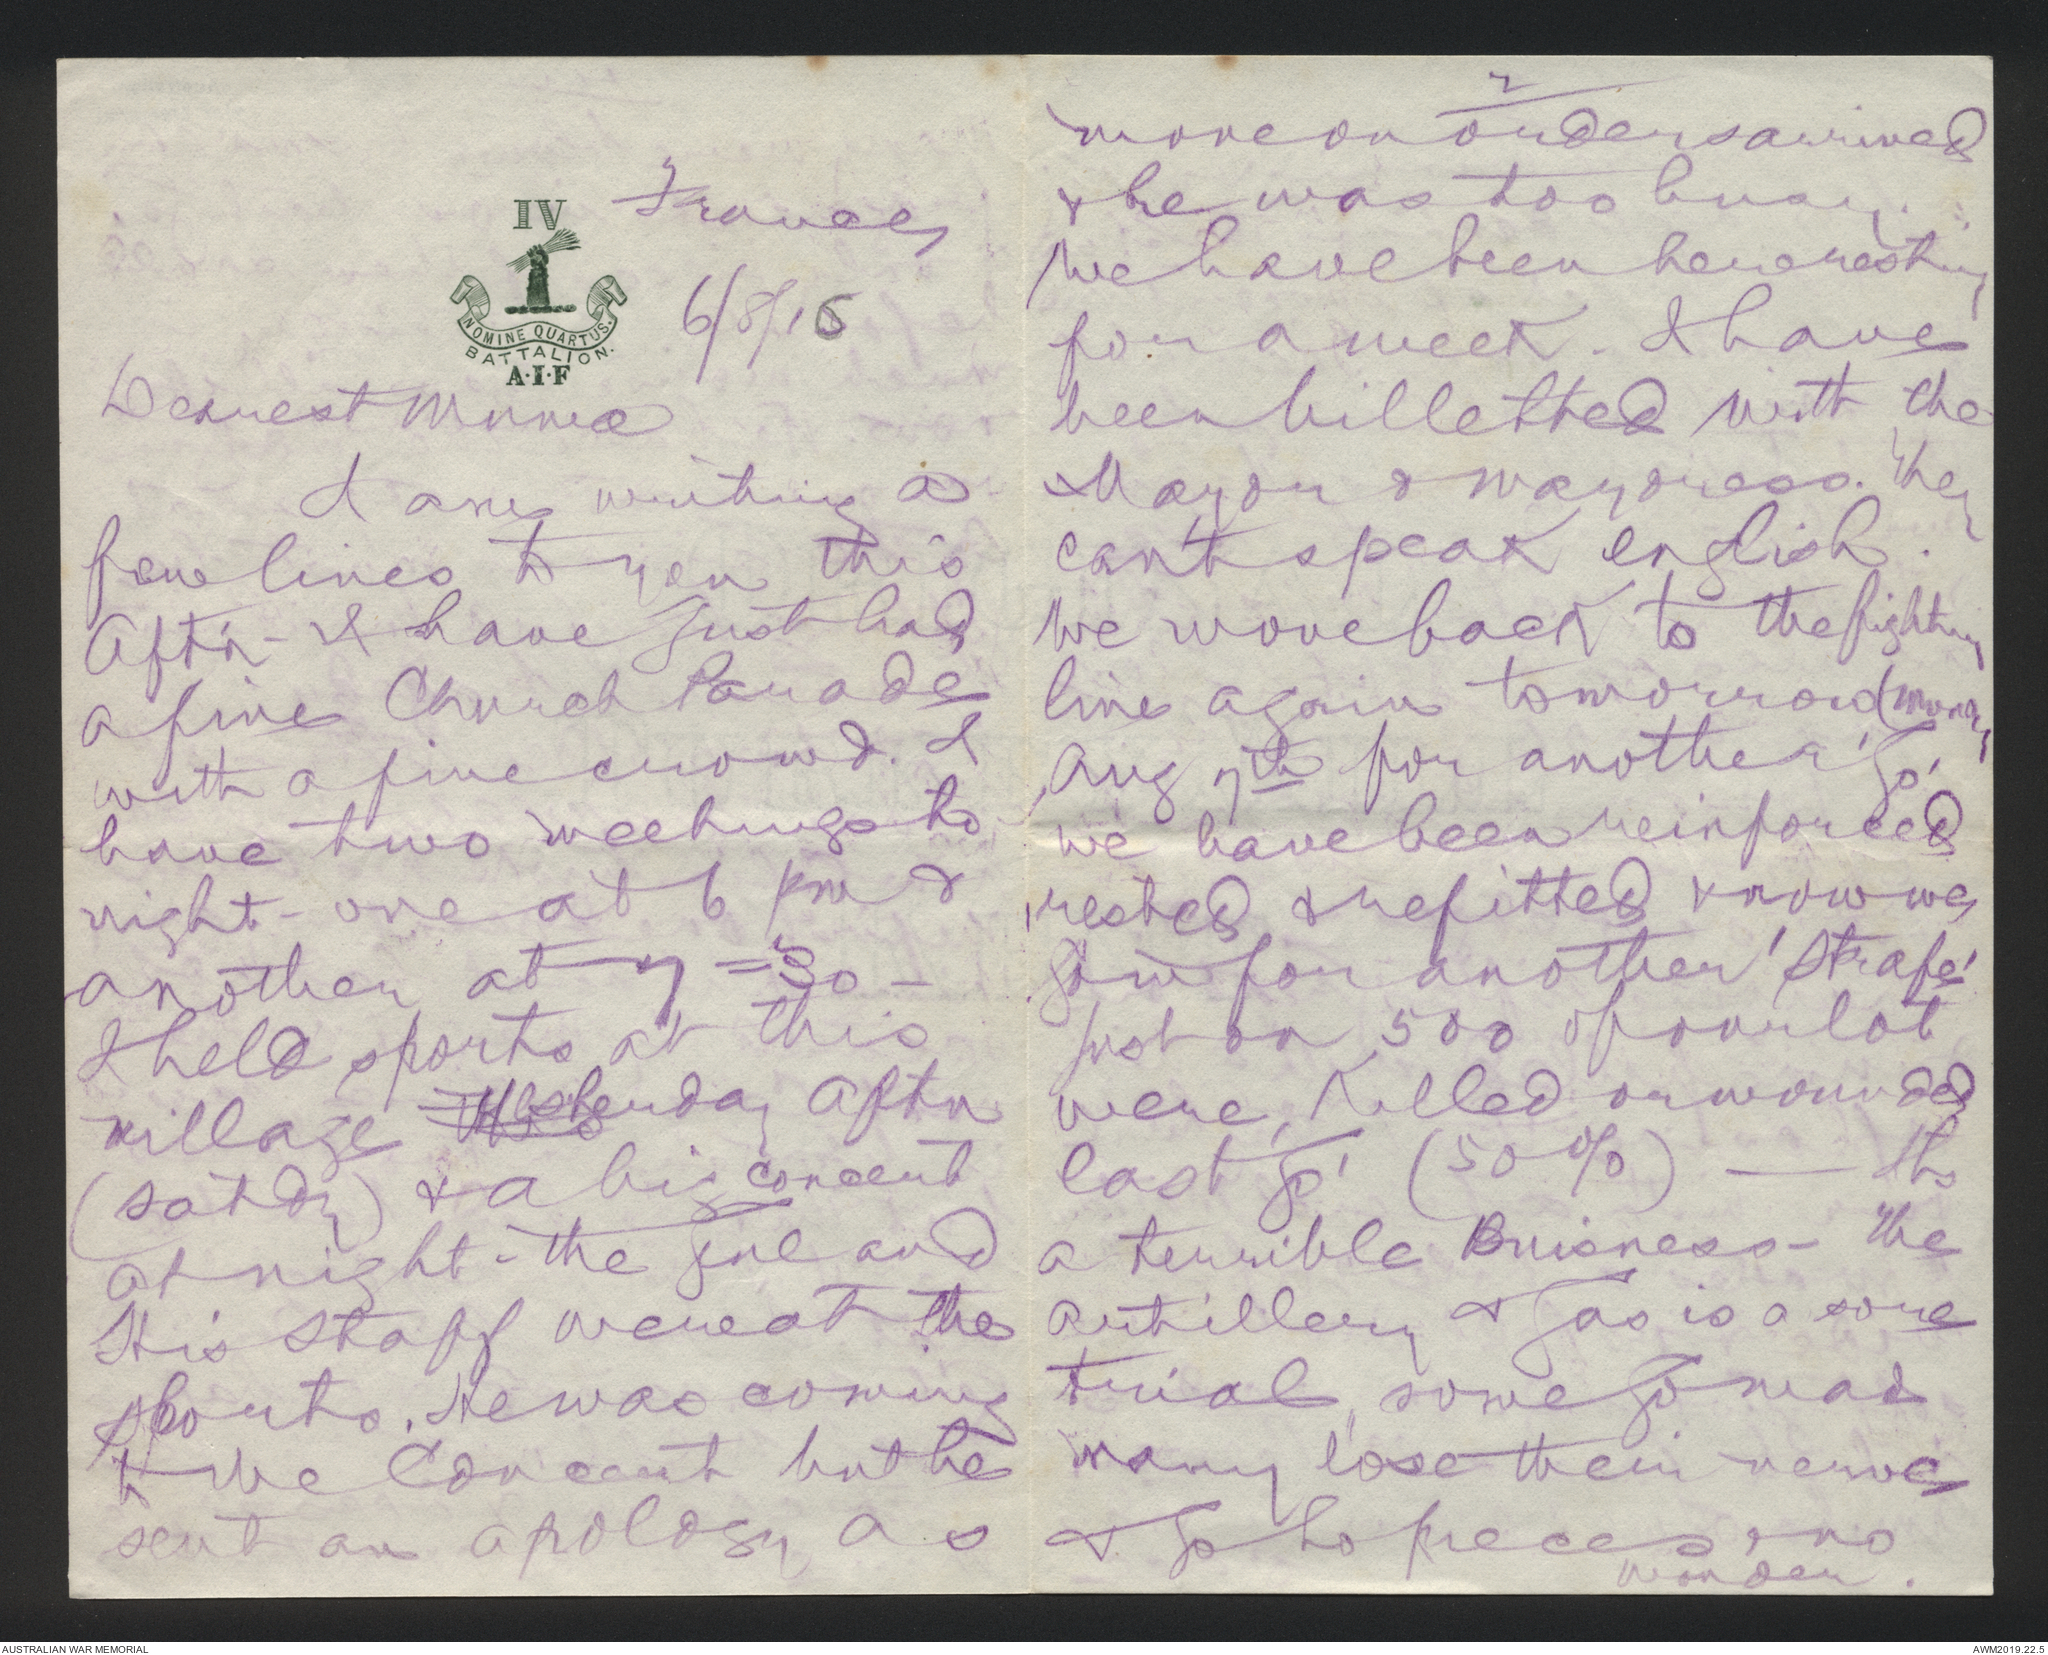 IV
NOMINE QUARTUS.
BATTALION.
A.I.F
France,
6/8/16
Dearest Mumee
I am writing a
few lines to you this
Aft'n - I have just had
a fine Church Parade
with a fine crowd. I
have two meetings to
night - one at 6 pm &
another at 7=30 -
I held sports at this
village yesterday Aftn
(Satdy) & a big concert
at night - the Gnl and
His Staff were at the
sports. He was coming
to the Concert but he
sent an apology as
2
move on orders arrived
& he was too busy.
We have been here resting
for a week. I have
been billetted with the
Mayor & Mayoress. They
can't speak english.
We move back to the fighting
line again tomorrow (Monday
Aug 7th for another 'Go'
we have been reinforced
rested & refitted & now we
go in for another 'Strafe'
Just on 500 of our lot
were killed or wounded
last 'go' (50%) — Its
a terrible Buisness - The
artillery & Gas is a sore
trial, some go mad
many lose their nerve
& go to pieces & no
wonder.
AUSTRALIAN WAR MEMORIAL
AWM2019.22.5